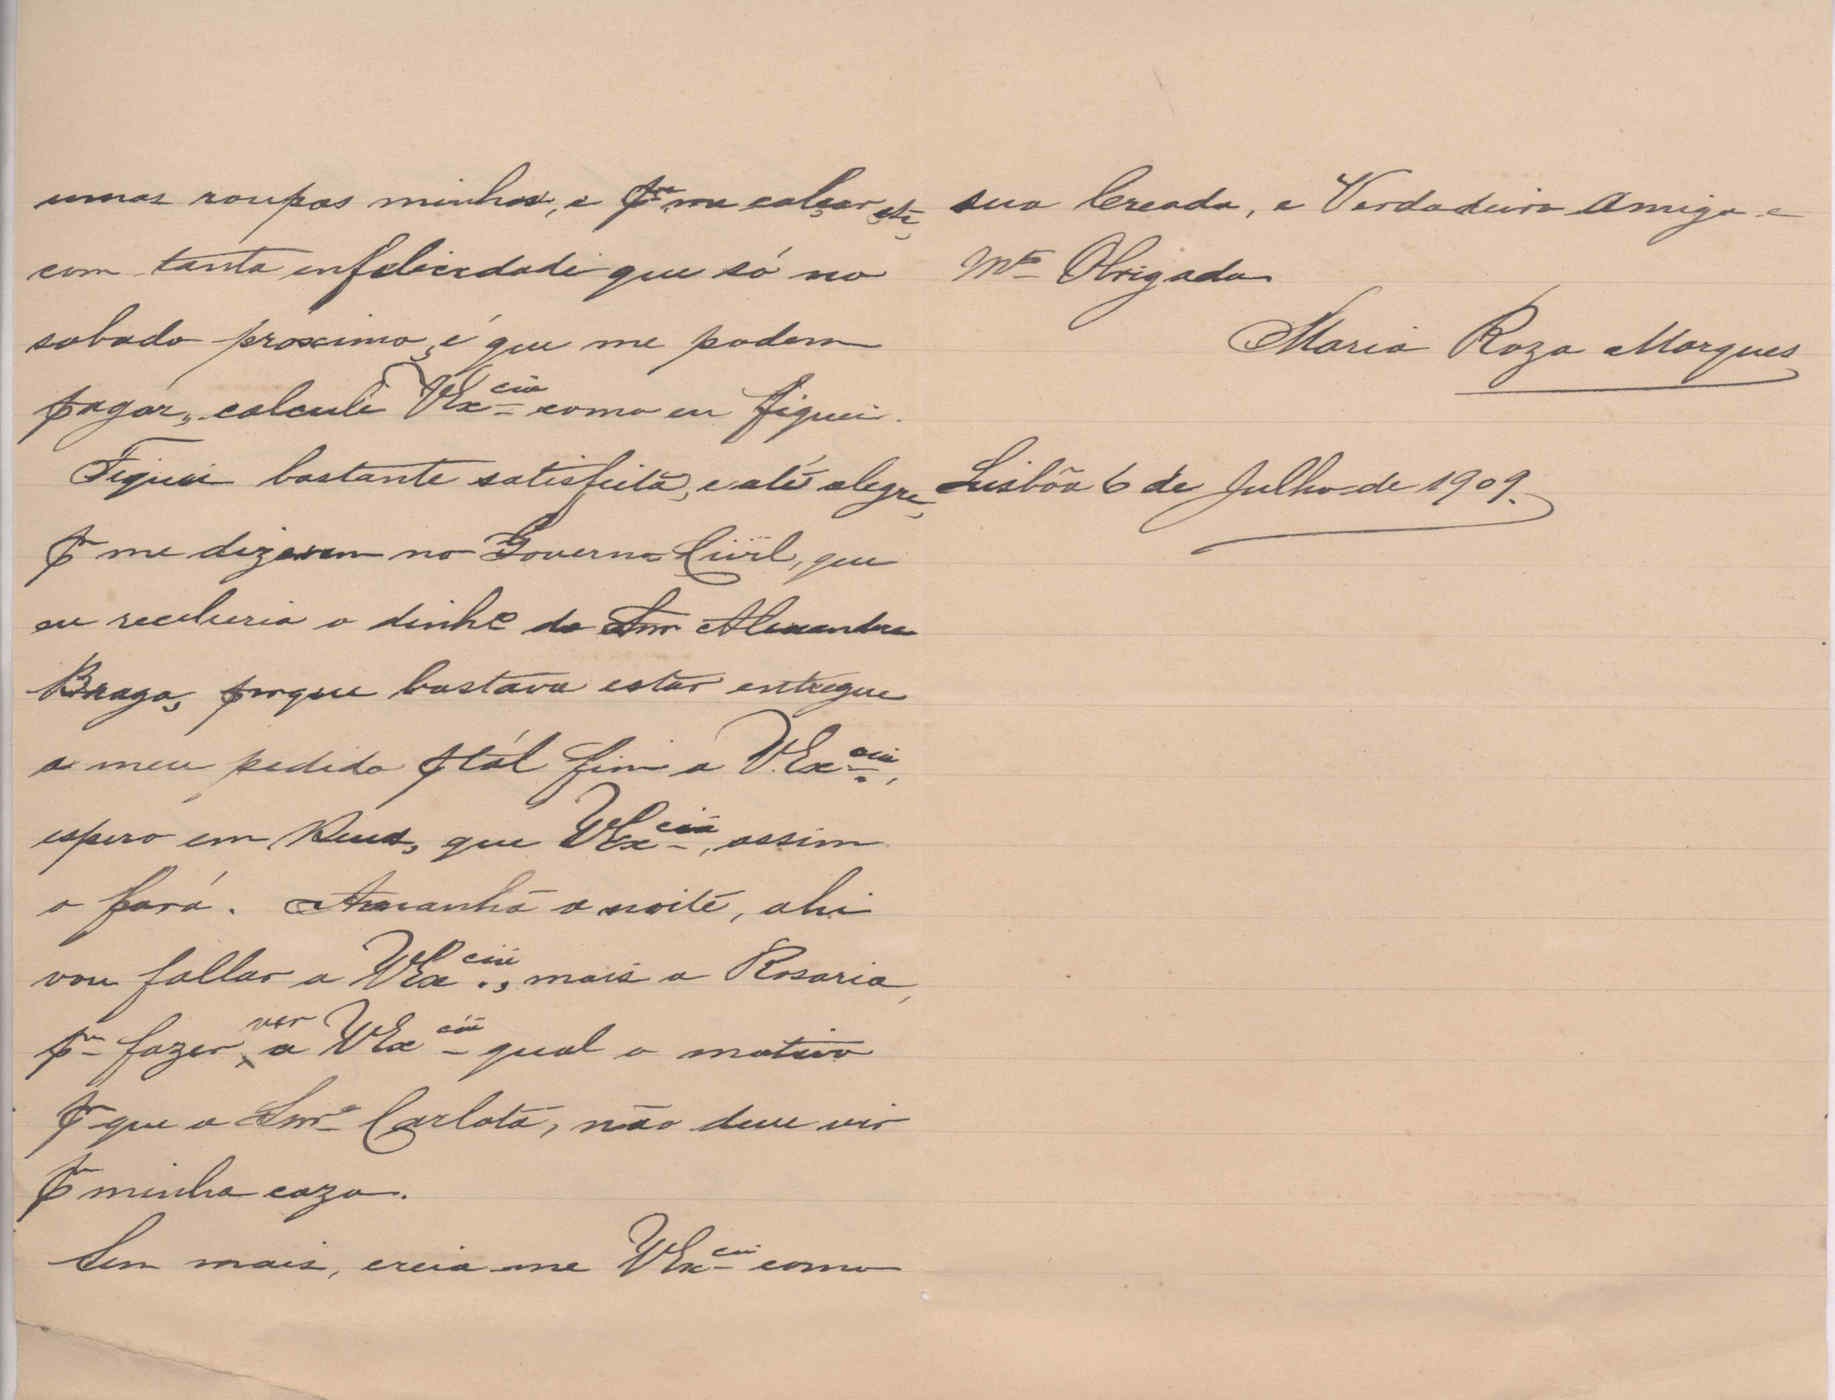 umas roupas minhas, e pra me calçar, etc,
com tanta enfelicidade que só no
sabado proximo, é que me podem
pagar, calcule VExcia como eu fiquei.
Fiquei bastante satisfeita, e até alegre,
pr me dizerem no Governo Civil, que
eu receberia o dinhº do Snr Alexandre
Braga, porque bastava estar entregue
a meu pedido ptál fim a V.Excia,
espero em Deus, que VExcia, assim
o fará. Amanhã a noite, ahi
vou fallar a VExcia., mais a Rosaria,
pra fazer ver a VExcia qual o motivo
pr que a Snrª Carlota, não deve vir
pa minha caza.
Sem mais, creia-me VExcia como
sua Creada, e Verdadeira Amiga e
Mto Obrigada
Maria Roza Marques
Lisbõa 6 de Julho de 1909.